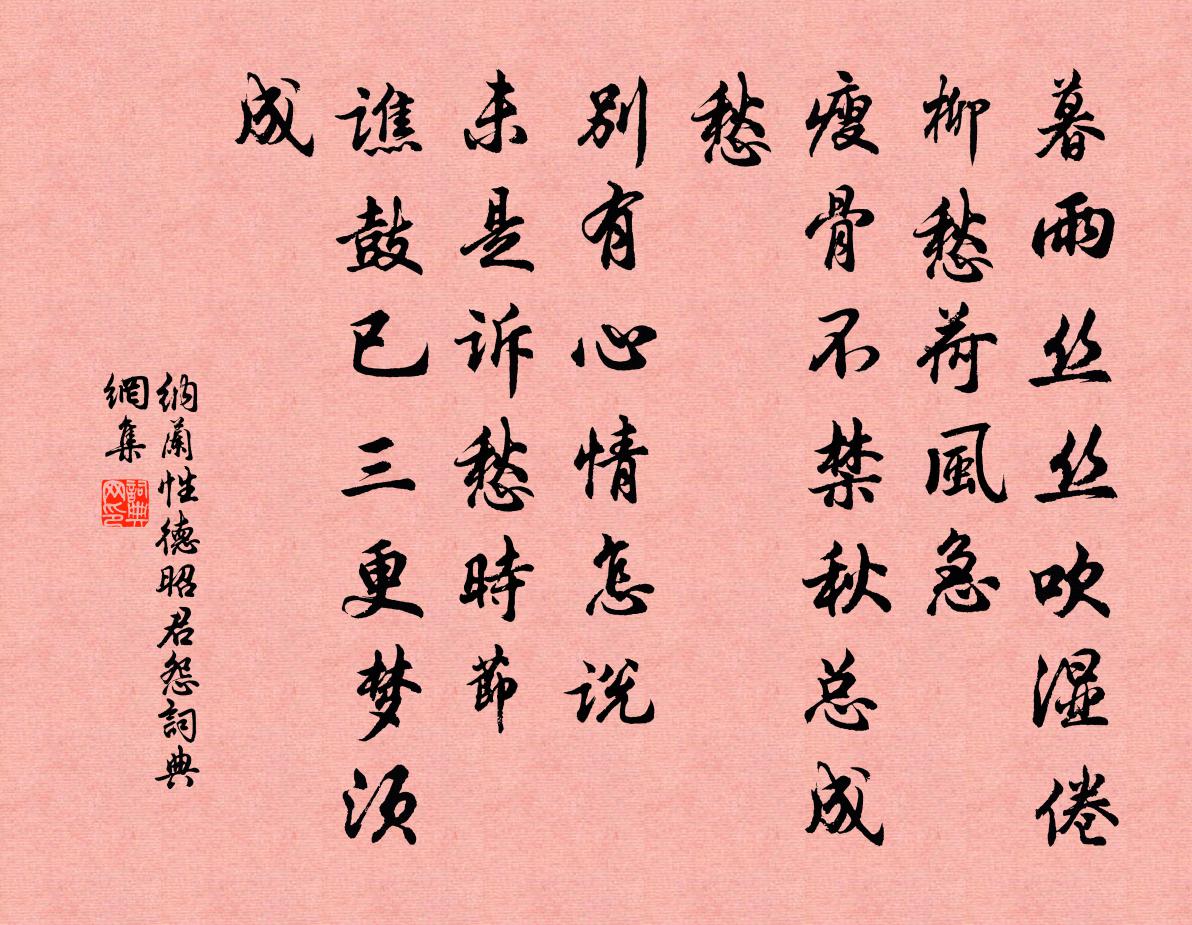 暮雨丝丝吹湿倦
柳愁荷風急
瘦骨不禁秋总成
愁
别有心情怎说
未是诉愁時節
谯鼓已三更梦须
成
纳蘭性德昭君怨詞典
網集
詞典
网印